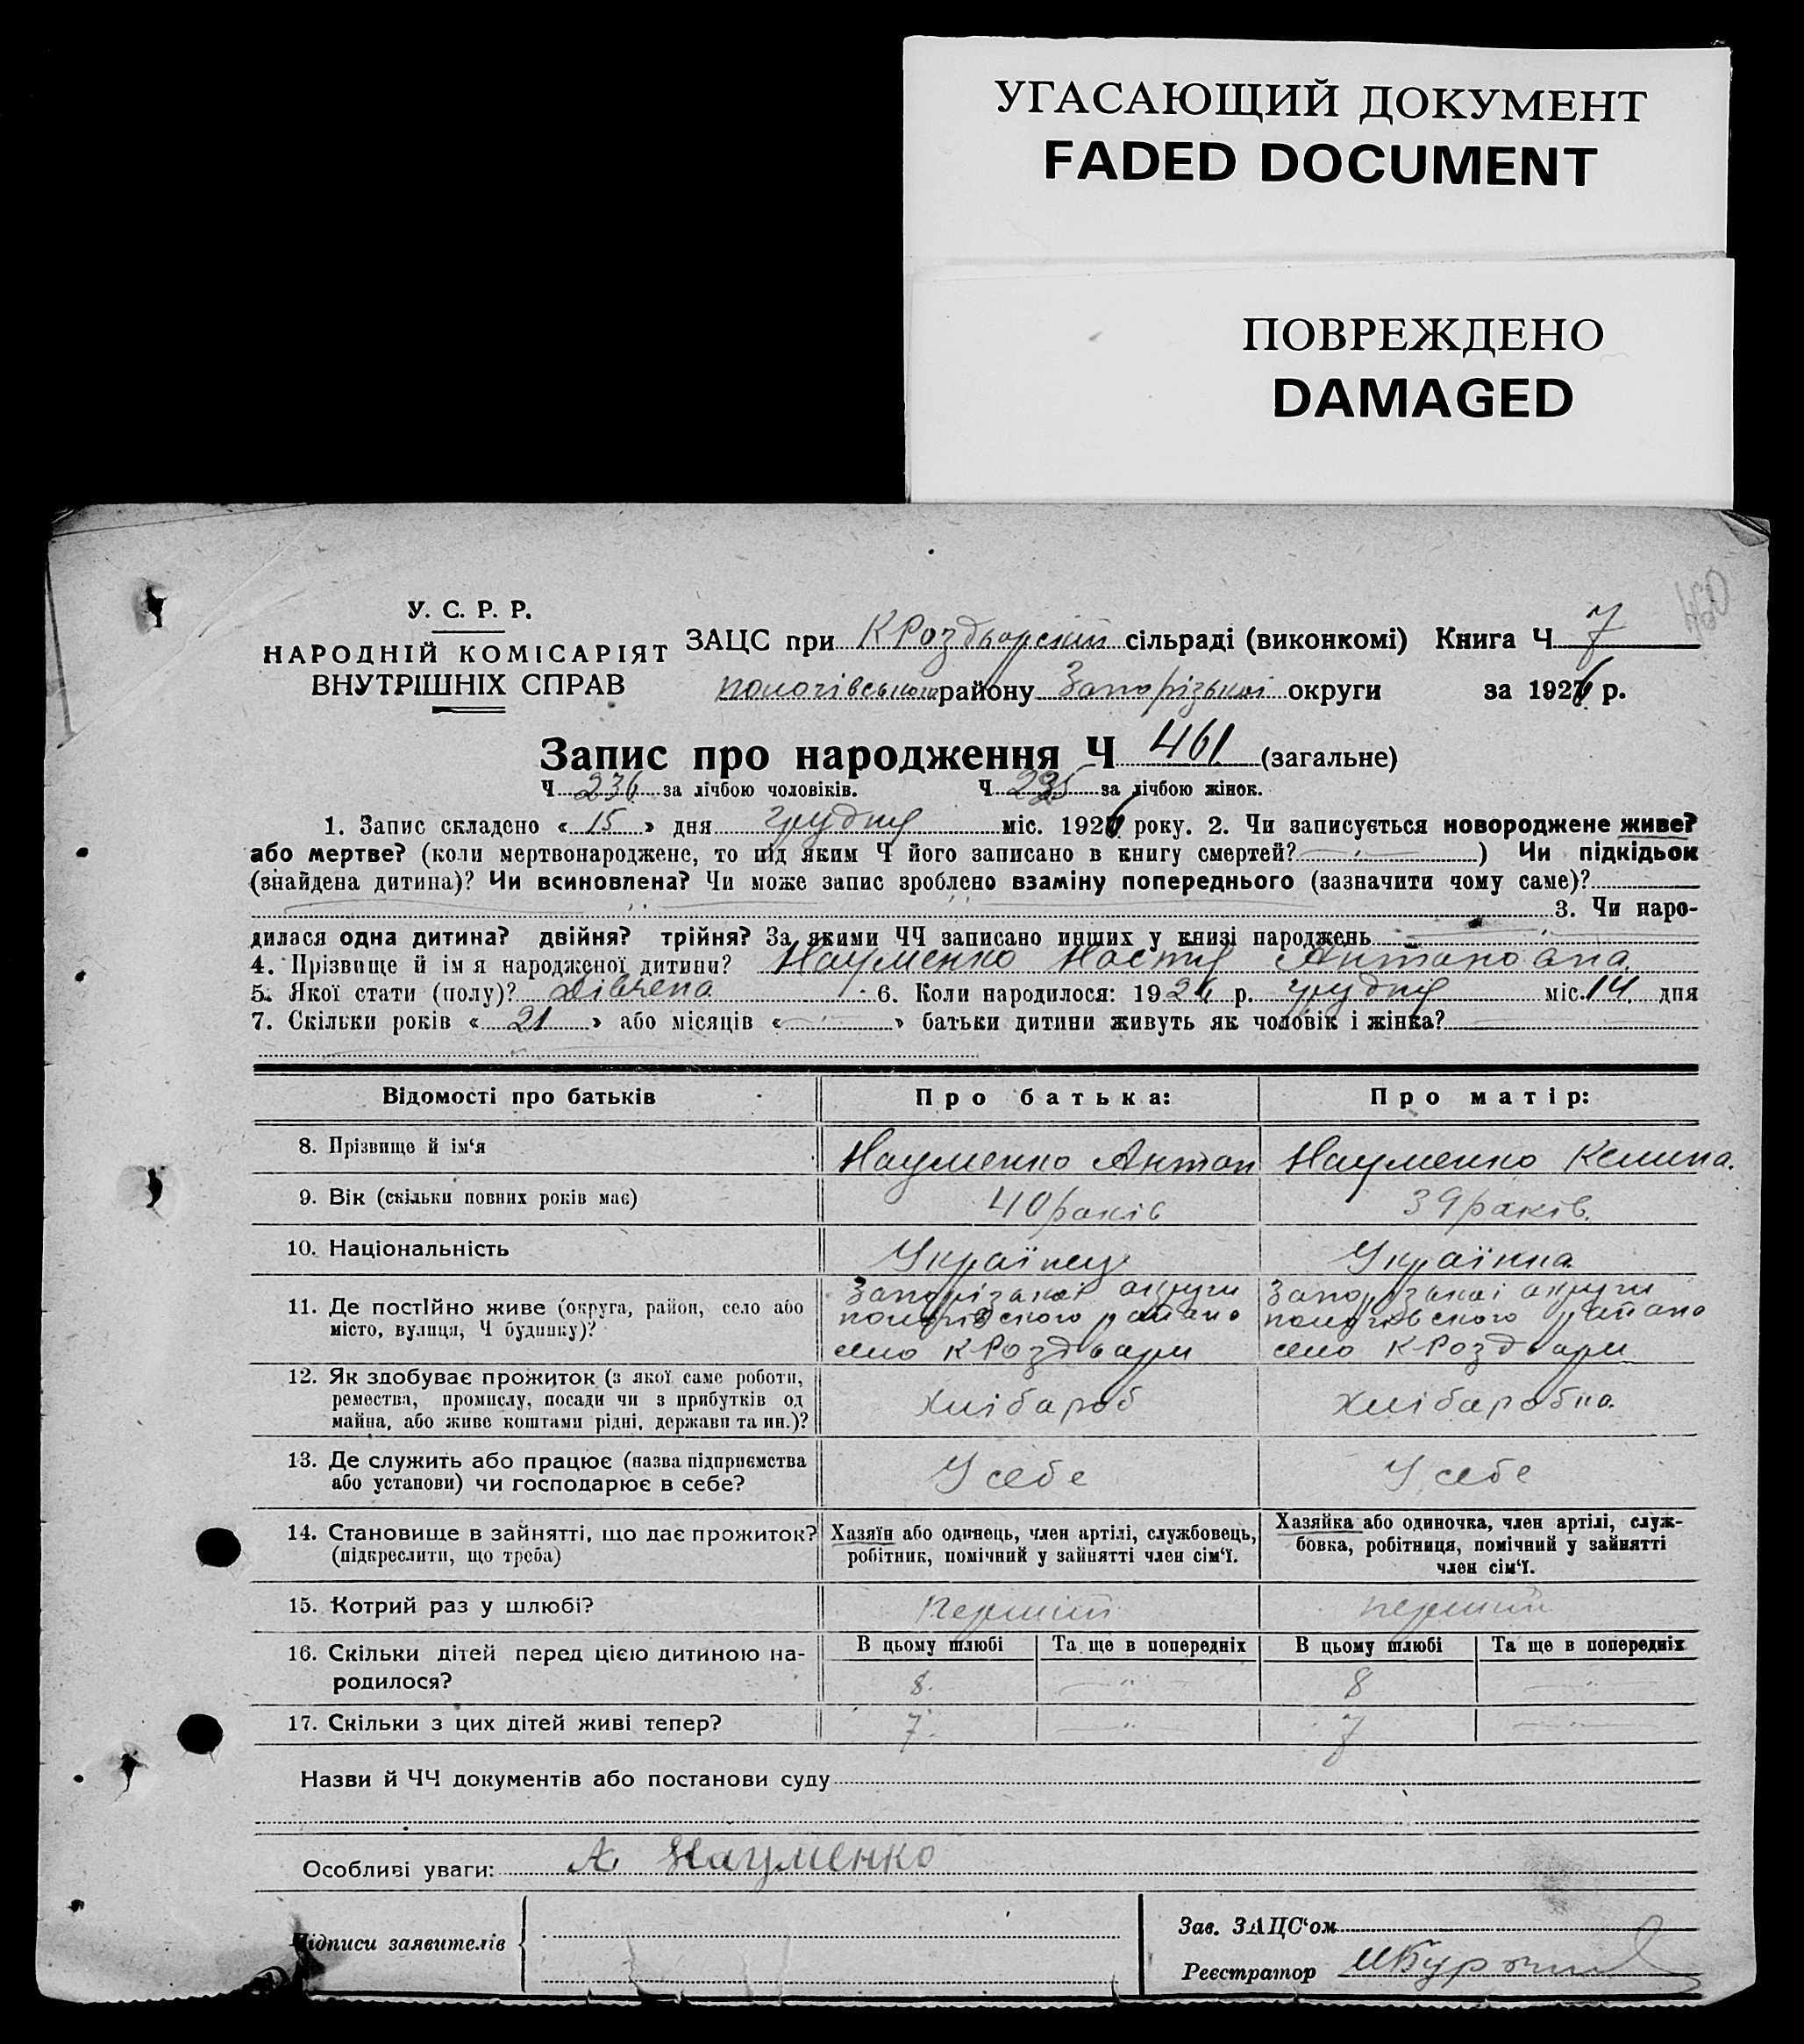 УГАСАЮЩИЙ ДОКУМЕНТ
FADED DOCUMENT
ПОВРЕЖДЕНО
DAMAGED
У. С. Р. Р.
НАРОДНІЙ КОМІСАРІЯТ
ВНУТРІШНІХ СПРАВ
ЗАЦС при КРоздорскій сільраді (виконкомі) Книга Ч 7
пологівського району Запорізькоі округи за 1926 р.
Запис про народження Ч 461 (загальне)
Ч 236 за лічбою чоловіків. Ч 225 за лічбою жінок.
1. Запис складено « 15 » дня грудня міс. 1926 року. 2. Чи записується новороджене живе?
або мертве? (коли мертвонароджене, то під яким Ч його записано в книгу смертей? ) Чи підкідьок
(знайдена дитина)? Чи всиновлена? Чи може запис зроблено взаміну попереднього (зазначити чому саме)?
3. Чи наро-
дилася одна дитина? двійня? трійня? За якими ЧЧ записано инших у книзі народжень
4. Прізвище й ім я народженої дитини? Науменко Настя Антановна
5. Якої стати (полу)? Дівчена 6. Коли народилося: 1926 р. грудня міс. 14 дня
7. Скільки років « 21 » або місяців « » батьки дитини живуть як чоловік і жінка?
Відомості про батьків Про батька: Про матір:
8. Прізвище й ім‘я Науменко Антон Науменко Килина.
9. Вік (скільки повних років має) 40 раків 39 раків.
10. Національність Українец Українка.
11. Де постІйно живе (округа, район, село або місто, вулиця, Ч будинку)?
Запорізькоі округи Запорізькоі округи
пологівского район пологівского район
село КРоздори село КРоздори
12. Як здобуває прожиток (з якої саме роботи,
ремества, промислу, посади чи з прибутків од
майна, або живе коштами рідні, держави та ин.)?
хлібароб хлібаробка.
13. Де служить або працює (назва підприємства
або установи) чи господарює в себе?
У себе У себе
14. Становище в зайнятті, що дає прожиток?
(підкреслити, що треба)
Хазяїн або одинець, член артілі, службовець,
робітник, помічний у зайнятті член сім‘ї.
Хазяйка або одиночка, член артілі, служ-
бовка, робітниця, помічний у зайнятті
член сім‘ї.
15. Котрий раз у шлюбі? перший перший
16. Скільки дітей перед цією дитиною на-
родилося?
В цьому шлюбі Та ще в попередніх В цьому шлюбі Та ще в попередніх
8. 8
17. Скільки з цих дітей живі тепер? 7. 7
Назви й ЧЧ документів або постанови суду
Особливі уваги: А Науменко
Підписи заявителів
Зав. ЗАЦС‘ом
Реєстратор